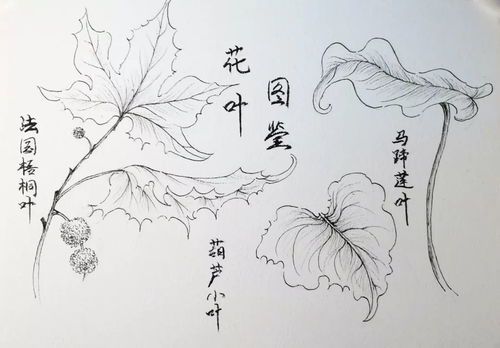 花一叶
图鉴
法国梧桐叶
葫芦小叶
马蹄莲叶